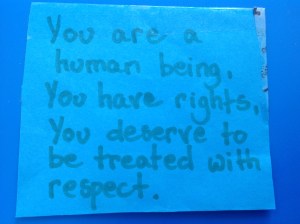 You are a
human being.
You have rights.
You deserve to
be treated with
respect.